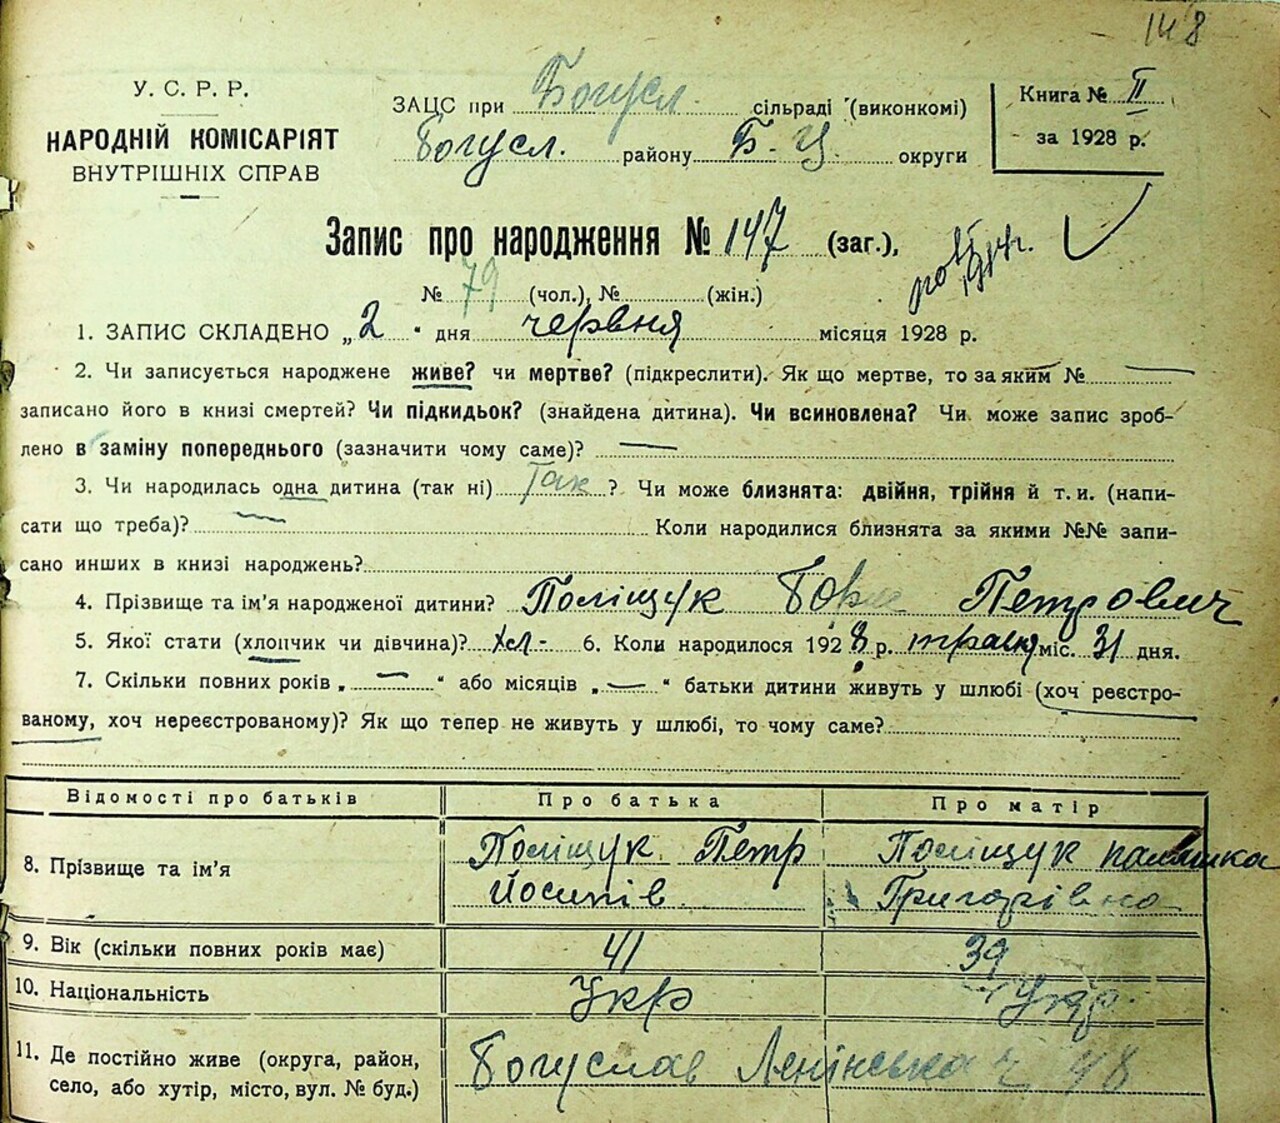 148
У. С. Р. Р.
НАРОДНІЙ КОМІСАРІЯТ
ВНУТРІШНІХ СПРАВ
ЗАЦС при Богусл. сільраді (виконкомі)
Богусл. району Б-Ц. округи
Книга № II
за 1928 р.
Запис про народження № 147 (заг.),
№ 79 (чол.), № (жін.)
1. ЗАПИС СКЛАДЕНО „2“ дня червня місяця 1928 р.
2. Чи записується народжене живе? чи мертве? (підкреслити). Як що мертве, то за яким №
записано його в книзі смертей? Чи підкидьок? (знайдена дитина). Чи всиновлена? Чи може запис зроб-
лено в заміну попереднього (зазначити чому саме)? —
3. Чи народилась одна дитина (так ні) Так ? Чи може близнята: двійня, трійня й т. и. (напи-
сати що треба)? Коли народилися близнята за якими №№ запи-
сано инших в книзі народжень?
4. Прізвище та ім’я народженої дитини? Поліщук Петрович
5. Якої стати (хлопчик чи дівчина)? Хл- 6. Коли народилося 1928 р. травня міс. 31 дня.
7. Скільки повних років „—“ або місяців „—“ батьки дитини живуть у шлюбі (хоч реєстро-
ваному, хоч нереєстрованому)? Як що тепер не живуть у шлюбі, то чому саме?
Відомості про батьків Про батька Про матір
8. Прізвище та ім’я Поліщук Петр Йосипів Поліщук Палашка Григорівна
9. Вік (скільки повних років має) 41 39
10. Національність Укр Укр.
11. Де постійно живе (округа, район,
село, або хутір, місто, вул. № буд.) Богуслав Ленінська 48